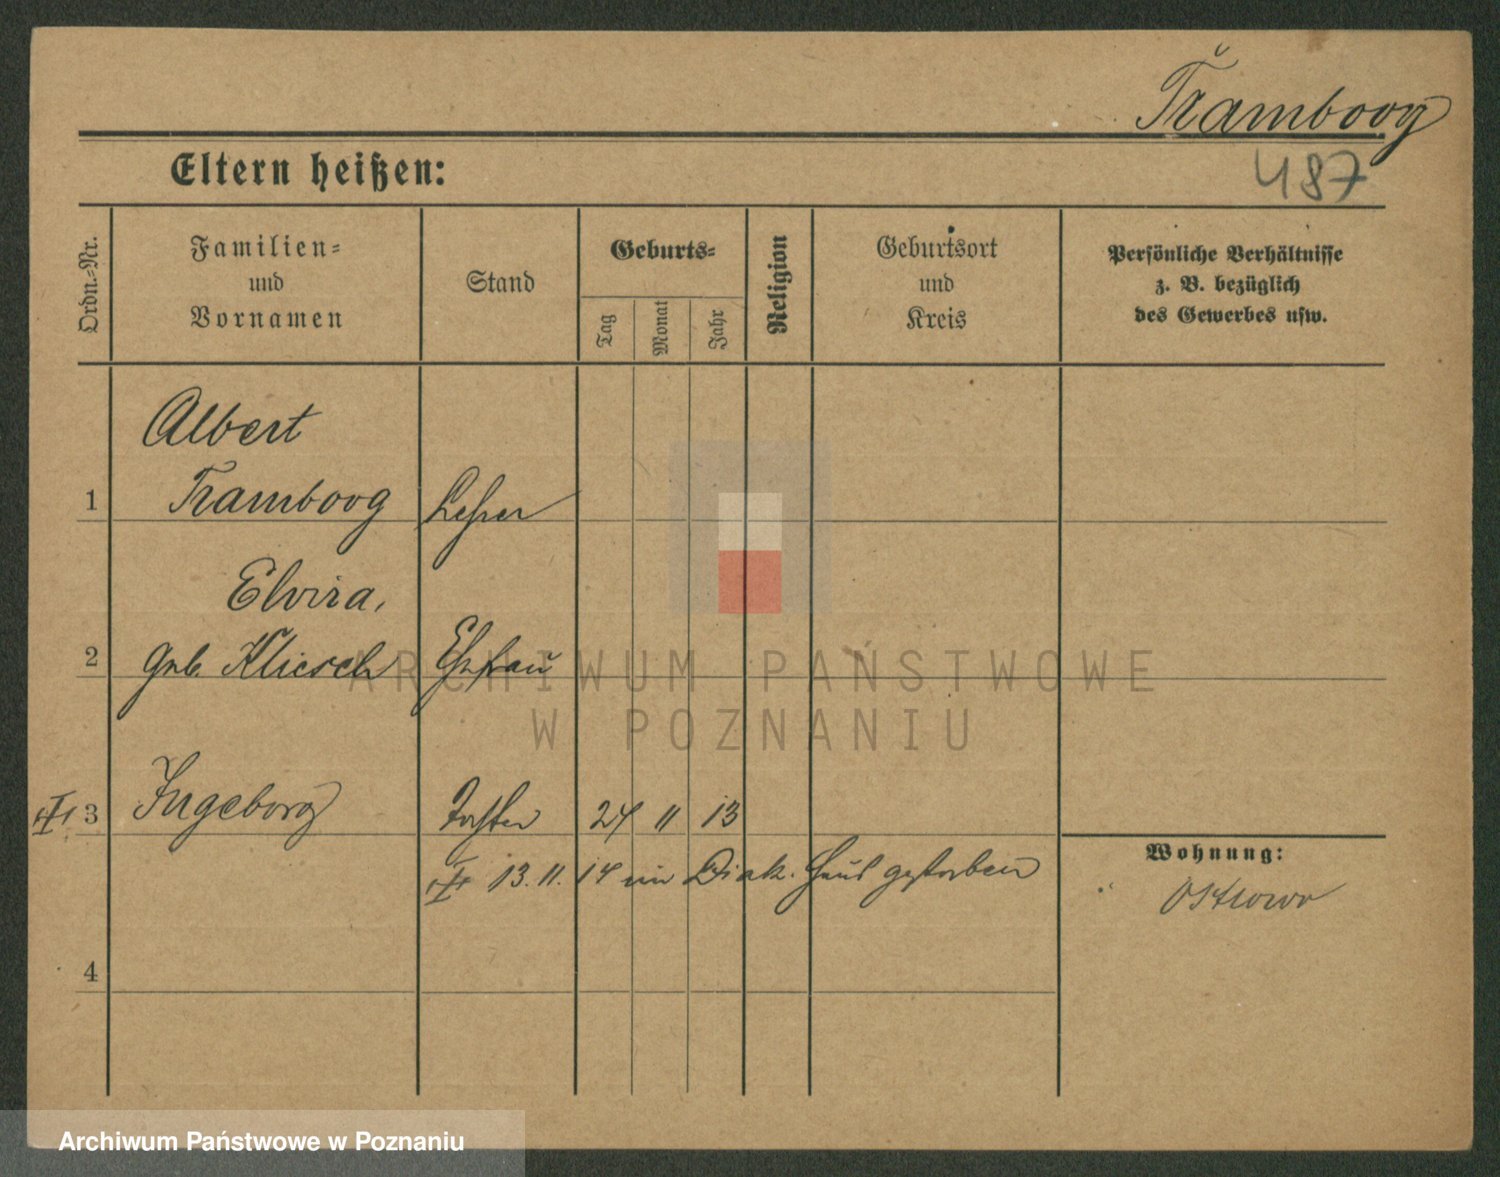 Tramboog
487
Eltern heißen:
Ordn.-Nr.
Familien-
und
Vornamen
Stand
Geburts-
Tag
Monat
Jahr
Religion
Geburtsort
und
Kreis
Persönliche Verhältnisse
z. B. bezüglich
des Gewerbes usw.
Albert
1 Tramboog Lehrer
Elvira,
2 geb. Kliesch Ehefrau
3 Ingeborg Tochter 24 11 13
13. 11. 14 im Diak. Haus gestorben
Wohnung:
Ostrowo
4
ARCHIWUM PAŃSTWOWE
W POZNANIU
Archiwum Państwowe w Poznaniu